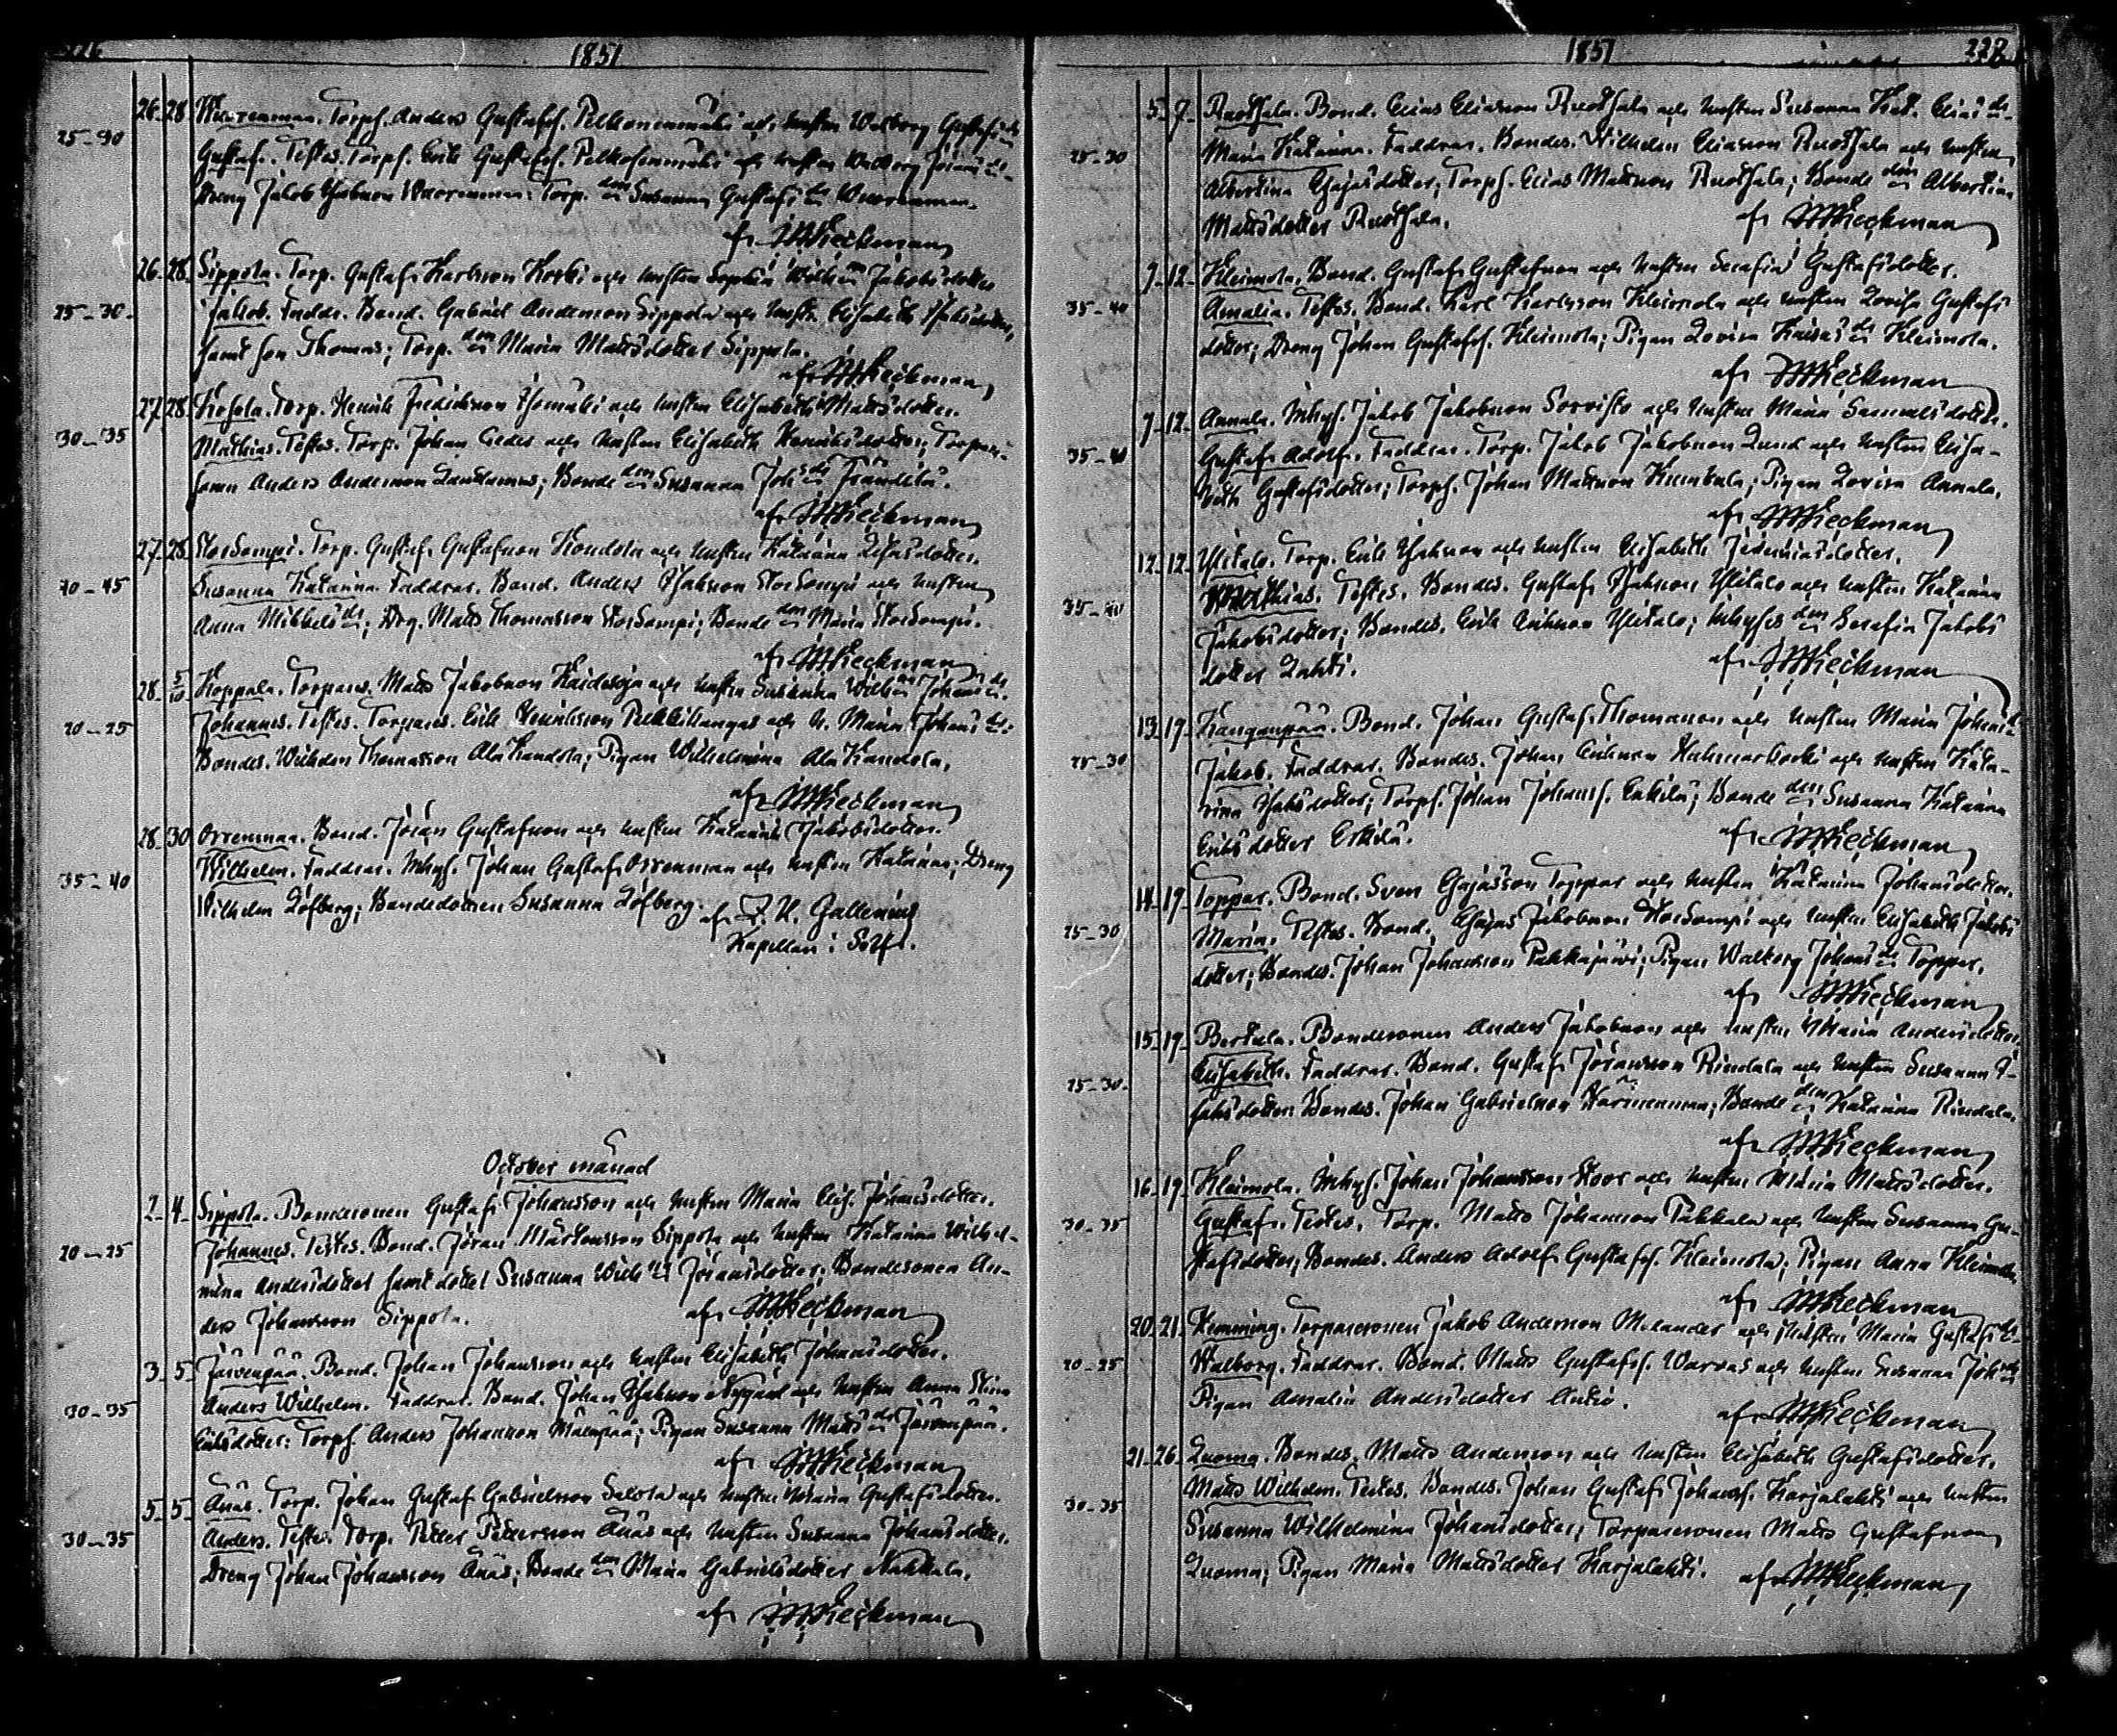 1851
26 28 Wuorenmaa. Torpf. Anders Gustafss. Pelkosenmäki och hustun Walborg Gustafs dr
25-30 Gustaf. Testes. Torpf. Erik Gustafss. Pelkosenmäki och hustun Walborg Jörans dr
Dreng Jakob Jakobsson Wuorenmaa: Torp. don Susanna Gustafs dr Wuorenmaa.
af JMKeckman
26 28 Sippola. Torp. Gustaf Karlsson Koski och hustun Sophia Wilh:na Jakobsdotter
25-30 Jakob. Faddr. Bond. Gabriel Andersson Sippola och hustr. Elisabeth
samt son Thomas; Torp. don Maria Mattsdotter Sippola.
af JMKeckman
27 28 Kosola. Torp. Henrik Fredriksson och hustun Elisabeth Mattsdotter.
30-35 Mathias. Testes. Torp. Johan Ceder och hustun Elisabeth Henriksdotter; Torpare-
sonen Anders Andersson; Bonde don Susanna Joh:s dr Frändilä.
af JMKeckman
27 28 Storsompi. Torp. Gustaf Gustafsson Kondola och hustun Katarina
40-45 Susanna Katarina. Faddrar. Bond. Anders Isaksson Storsompi och hustun
Anna Mikkels dr; Drg. Matts Thomasson Storsompi; Bonde don Maria Storsompi.
af JMKeckman
28 5/10 Koppala. Torpares. Matts Jakobsson Kaidesoja och hustun Susanna Wilh:na Johans dr
20-25 Johannes. Testes. Torpares. Erik Henriksson och h. Maria Johans dr:
Bondes. Wilhelm Thomasson Ala Kandola; Pigan Wilhelmina Ala Kandola.
af JMKeckman
28 30 Orrenmaa. Bond. Jöran Gustafsson och hustun Katarina Jakobsdotter.
35-40 Wilhelm. Faddrar. Inhys. Johan Gustaf Orrenmaa och hustun Katarina; Dreng
Wilhelm Löfberg; Bondedottren Susanna Löfberg.
af Gallenius
Kapellan i Solf.
October månad
2 4 Sippola. Bondesonen Gustaf Johansson och hustun Maria Elis. Johansdotter.
20-25 Johannes. Testes. Bond. Jöran Mårtensson Sippola och hustun Katarina Wilhel-
mina Andersdotter samt dotter Susanna Wilh:na Jöransdotter; Bondesonen An-
ders Johansson Sippola.
af JMKeckman
3 5 Järvenpää. Bond. Johan Johansson och hustun Elisabeth Johansdotter.
30-35 Anders Wilhelm. Faddrar. Bond. Johan Isaksson Nygård och hustun Anna Stina
Eriksdotter: Torpf. Anders Johansson Mäenpää; Pigan Susanna Matts dr Järvenpää.
af JMKeckman
5 5 Ånäs. Torp. Johan Gustaf Gabrielsson Salola och hustun Maria Gustafsdotter.
30-35 Anders. Testes. Torp. Petter Pettersson Ånäs och hustun Susanna Johansdotter.
Dreng Johan Johansson Ånäs; Bonde don Maria Gabrielsdotter Nahkala.
af JMKeckman
1851
5 7 Ruothala. Bond. Elias Eliasson Ruothala och hustun Susanna Kat. Elias dr
25-30 Maria Katarina. Faddrar. Bondes. Wilhelm Eliasson Ruothala och hustun
Albertina Esajasdotter; Torpf. Elias Mattsson Ruothala; Bonde don Albertina
Mattsdotter Ruothala.
af JMKeckman
7 12 Kleimola. Bond. Gustaf Gustafsson och hustun Serafia Gustafsdotter.
35-40 Amalia. Testes. Bond. Karl Karlsson Kleimola och hustun Lovisa Gustafs
dotter; Dreng Johan Gustafss. Kleimola; Pigan Lovisa Kaisas dr Kleimola.
af JMKeckman
7 12 Annala. Inhys. Jakob Jakobsson Sorvisto och hustun Maria Samuelsdotter.
35-40 Gustaf Adolf. Faddrar. Torp. Jakob Jakobsson Lund och hustun Elisa-
beth Gustafsdotter; Torpf. Johan Mattsson; Pigan Lovisa Annala.
af JMKeckman
12 12 Ylitalo. Torp. Erik Isaksson och hustun Elisabeth Jeremiasdotter.
35-40 Mathias. Testes. Bondes. Gustaf Isaksson Ylitalo och hustun Katarina
Jakobsdotter; Bondes. Erik Eriksson Ylitalo; Inhyses don Serafia Jakobs
dotter Lahti.
af JMKeckman
13 19 Kangaspää. Bond. Johan Gustaf Thomasson och hustun Maria Johans dr
25-30 Jakob. Faddrar. Bondes. Johan Eriksson Hahmarkoski och hustun Kata-
rina Isaksdotter; Torpf. Johan Johanss. Erkilä; Bonde don Susanna Katarina
Eriksdotter Erkilä.
af JMKeckman
14 19 Toppar. Bond. Sven Esajasson Toppar och hustun Katarina Johansdotter.
25-30 Maria. Testes. Bond. Esajas Jakobsson Storsompi och hustun Elisabeth Jakobs
dotter; Bondes. Johan Johansson Pakkajärvi; Pigan Walborg Johans dr Toppar.
af JMKeckman
15 19 Pertula. Bondesonen Anders Jakobsson och hustun Maria Andersdotter.
25-30 Elisabeth. Faddrar. Bond. Gustaf Jöransson Rindala och hustun Susanna I-
saksdotter: Bondes. Johan Gabrielsson; Bonde don Katarina Rindala.
af JMKeckman
16 19 Kleimola. Inhys. Johan Johansson Koor och hustun Maria Mattsdotter.
30-35 Gustaf. Testes. Torp. Matts Johansson Pakkala och hustun Susanna Gu-
stafsdotter; Bondes. Anders Adolf Gustafss. Kleimola; Pigan Anna Kleimola.
af JMKeckman
20 21 Hemming. Torparesonen Jakob Andersson Melander och hustun Maria Gustafs dr
20-25 Walborg. Faddrar. Bond. Matts Gustafss. Warvas och hustun Susanna Joh:s dr
Pigan Amalia Andersdotter Antio.
af JMKeckman
21 26 Luoma. Bondes. Matts Andersson och hustun Elisabeth Gustafsdotter.
30-35 Matts Wilhelm. Testes. Bondes. Johan Gustaf Johanss. Karjalahti och hustun
Susanna Wilhelmina Johansdotter; Torparesonen Matts Gustafsson
Luoma; Pigan Maria Mattsdotter Karjalahti.
af JMKeckman